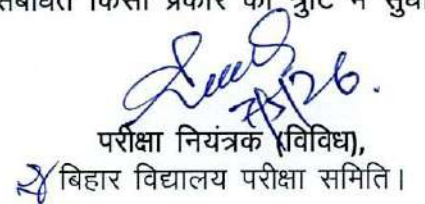 संबंधित किसी प्रकार की त्रुटि में सुधा
7/5/26.
परीक्षा नियंत्रक (विविध),
बिहार विद्यालय परीक्षा समिति।